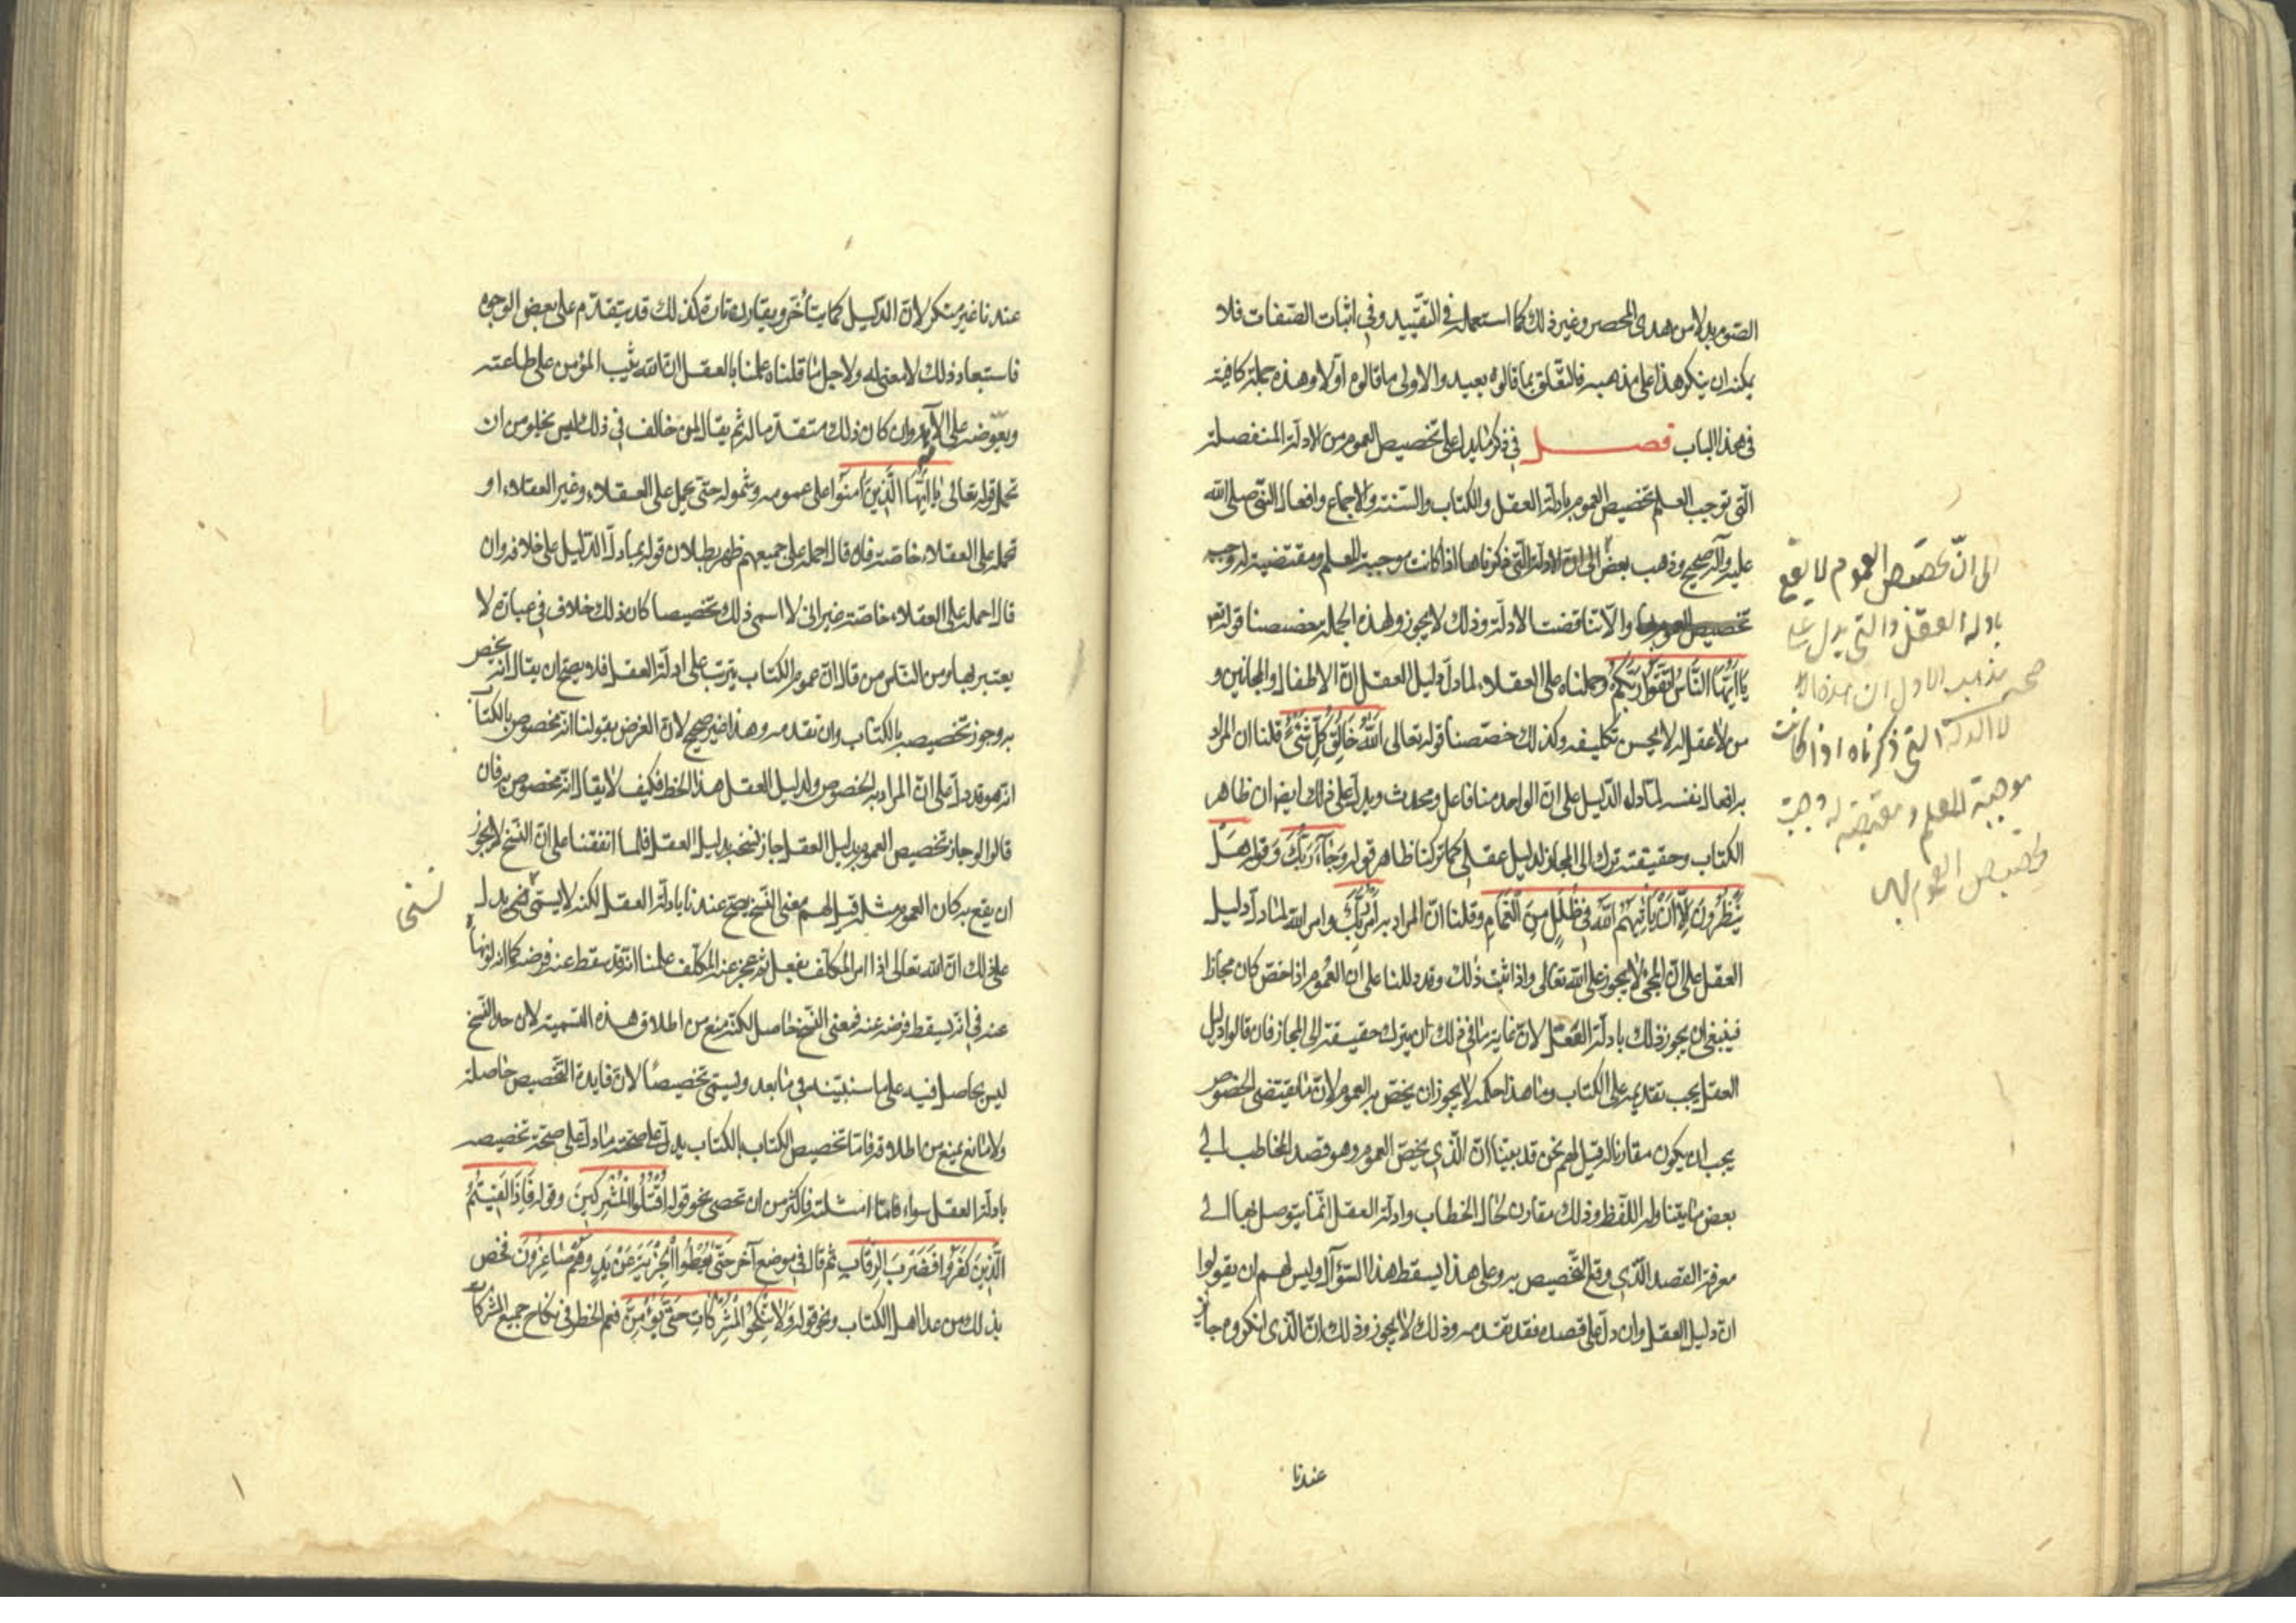 الصوم بدلا من هدى المحصر وغير ذلك كما استعمله في التقييد وفي اثبات الصفات فلا
يمكنه ان ينكر هذا على مذهبه فالتعلق بما قالوه بعيد والاولى ما قالوه اولا وهذه جملة كافية
في هذا الباب فصل في ذكر ما يدل على تخصيص العموم من الادلة المنفصلة
التي توجب العلم تخصيص العموم بادلة العقل والكتاب والسنة والاجماع وافعال النبي صلى الله
عليه وآله صحيح وذهب بعض الى ان الادلة التي ذكرناها اذا كانت موجبة للعلم ومقتضية له وجب
تخصيص العموم بها والا تناقضت الادلة وذلك لا يجوز ولهذه الجملة خصصنا قوله تعالى
يَا أَيُّهَا النَّاسُ اتَّقُوا رَبَّكُمُ وحملناه على العقلاء لما دل دليل العقل ان الاطفال والمجانين و
من لا عقل له لا يحسن تكليفه وكذلك خصصنا قوله تعالى اللَّهُ خَالِقُ كُلِّ شَيْءٍ قلنا ان المراد
به افعال نفسه لما دل الدليل على ان الواحد منا فاعل ومحدث ويدل على ذلك ايضا ان ظاهر
الكتاب وحقيقته ترك الى المجاز لدليل عقلي كما تركنا ظاهر قوله وَجَاءَ رَبُّكَ وقوله هَلْ
يَنْظُرُونَ إِلَّا أَنْ يَأْتِيَهُمُ اللَّهُ فِي ظُلَلٍ مِنَ الْغَمَامِ وقلنا ان المراد به امر ربك وامر الله لما دل دليل
العقل على ان المجئ لا يجوز على الله تعالى واذا ثبت ذلك وقد دللنا على ان العموم اذا خص كان مجازا
فينبغي ان يجوز ذلك بادلة العقل لان غاية ما في ذلك ان يترك حقيقته الى المجاز فان قالوا دليل
العقل يجب تقديمه على الكتاب وما هذا حكمه لا يجوز ان يخص به العموم لان ما يقتضي الخصوص
يجب ان يكون مقارنا له قيل لهم نحن قد بينا ان الذي يخص العموم وهو قصد المخاطب الى
بعض ما يتناوله اللفظ وذلك مقارن لحال الخطاب وادلة العقل انما يتوصل بها الى
معرفة القصد الذي وقع التخصيص به وعلى هذا يسقط هذا السؤال وليس لهم ان يقولوا
ان دليل العقل وان دل على قصده فقد تقدمه وذلك لا يجوز وذلك ان الذي انكروه جايز
عندنا
الى ان تخصيص العموم لا يقع
بادلة العقل والتي يدل على
صحة مذهب الاول ان
الادلة التي ذكرناه اذا كانت
موجبة للعلم و مقتضية له وجبت
تخصيص العموم بها
عندنا غير منكر لان الدليل كما يتأخر ويقارن تارة كذلك قد يتقدم على بعض الوجوه
فاستبعاد ذلك لا معنى له ولاجل ما قلناه علمنا بالعقل ان الله يثيب المؤمن على طاعته
ويعوضه على الآلام وان كان ذلك متقدما له ثم يقال لمن خالف في ذلك ليس يخلو من ان
تحمل قوله تعالى يَا أَيُّهَا الَّذِينَ آمَنُوا على عمومه وشموله حتى يحمل على العقلاء وغير العقلاء او
تحمله على العقلاء خاصة فان قال احمله على جميعهم ظهر بطلان قوله بما دل الدليل على خلافه وان
قال احمله على العقلاء خاصة غير انى لا اسمي ذلك تخصيصا كان ذلك خلاف في عبارة لا
يعتبر بها ومن الناس من قال ان عموم الكتاب يترتب على ادلة العقل فلا يصح ان يقال انه يخص
به وجوز تخصيصه بالكتاب وان تقدمه وهذا غير صحيح لان الغرض بقولنا انه مخصوص بالكتاب
انه هو قد دل على ان المراد به الخصوص ولدليل العقل هذا الحظ فكيف لا يقال انه مخصوص به فان
قالوا لو جاز تخصيص العموم بدليل العقل جاز نسخه بدليل العقل فلما اتفقنا على ان النسخ لا يجوز
ان يقع به كان العموم مثله قيل لهم معنى النسخ يصح عندنا بادلة العقل لكنه لا يسمى يدل
نسخا
على ذلك ان الله تعالى اذا امر المكلف بفعل ثم عجز عنه المكلف علمنا انه قد سقط عنه فرضه كما انه لو نهاه
عنه في انه يسقط فرضه عنه فمعنى النسخ حاصل لكنه منع من اطلاق هذه التسمية لان حد النسخ
ليس بحاصل فيه على ما سنبينه في ما بعد ويسمى تخصيصا لان فايدة التخصيص حاصلة
ولا مانع يمنع من اطلاقه فاما تخصيص الكتاب بالكتاب يدل على صحته ما دل على صحة تخصيصه
بادلة العقل سواء فاما امثلته فاكثر من ان تحصى نحو قوله اقْتُلُوا الْمُشْرِكِينَ وقوله فَإِذَا لَقِيتُمُ
الَّذِينَ كَفَرُوا فَضَرْبَ الرِّقَابِ ثم قال في موضع آخر حَتَّى يُعْطُوا الْجِزْيَةَ عَنْ يَدٍ وَهُمْ صَاغِرُونَ فخص
بذلك من عدا اهل الكتاب ونحو قوله وَلَا تَنْكِحُوا الْمُشْرِكَاتِ حَتَّى يُؤْمِنَّ فعم الحظر في نكاح جميع المشركات